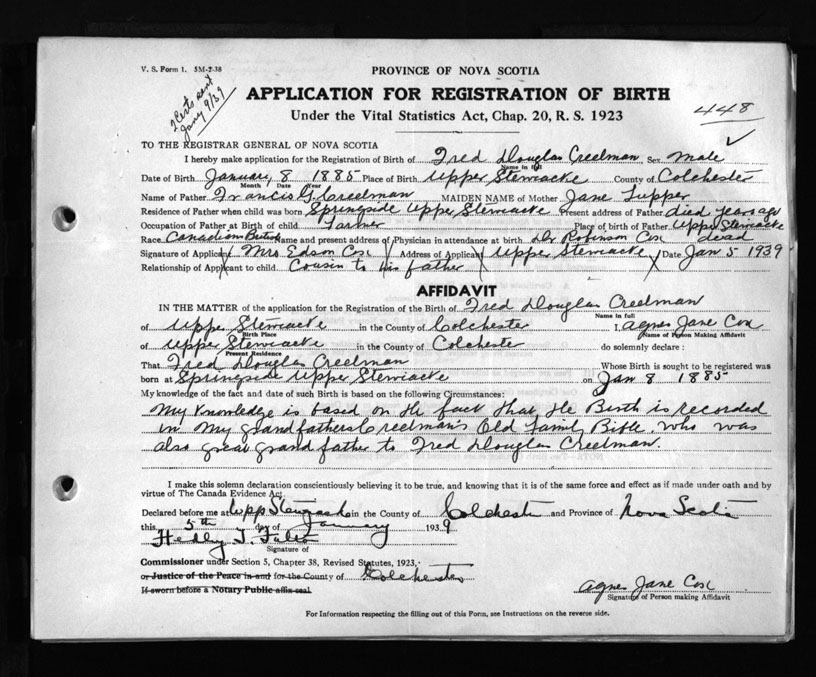 V. S. Form 1. 5M-7-38
PROVINCE OF NOVA SCOTIA
2 Certs sent
Jany 9/39
APPLICATION FOR REGISTRATION OF BIRTH
448
Under the Vital Statistics Act, Chap. 20, R. S. 1923
TO THE REGISTRAR GENERAL OF NOVA SCOTIA
I hereby make application for the Registration of Birth of Fred Douglas Creelman Sex Male
Name in full
Date of Birth January 8 1885 Place of Birth Upper Stewiacke County of Colchester
Month / Date Year
Name of Father Francis G. Creelman MAIDEN NAME of Mother Jane Tupper
Residence of Father when child was born Springside Upper Stewiacke Present address of Father died years ago
Occupation of Father at Birth of child Farmer Place of birth of Father Upper Stewiacke
Race Canadian British Name and present address of Physician in attendance at birth Dr Robinson Cox dead
Signature of Applicant Mrs Edson Cox Address of Applicant Upper Stewiacke Date Jan 5 1939
Relationship of Applicant to child Cousin to his father
AFFIDAVIT
IN THE MATTER of the application for the Registration of the Birth of Fred Douglas Creelman
Name in full
of Upper Stewiacke in the County of Colchester I, Agnes Jane Cox
Birth Place Name of Person Making Affidavit
of Upper Stewiacke in the County of Colchester do solemnly declare :
Present Residence
That Fred Douglas Creelman Whose Birth is sought to be registered was
born at Springside Upper Stewiacke on Jan 8 1885
My knowledge of the fact and date of such Birth is based on the following Circumstances:
My Knowledge is based on the fact that the Birth is recorded
in my grandfathers Creelman's Old Family Bible who was
also great grand father to Fred Douglas Creelman.
I make this solemn declaration conscientiously believing it to be true, and knowing that it is of the same force and effect as if made under oath and by
virtue of The Canada Evidence Act.
Declared before me at in the County of Colchester and Province of Nova Scotia
this 5th day of January 1939
Hedley J. Fulton
Signature of
Commissioner under Section 5, Chapter 38, Revised Statutes, 1923,
or Justice of the Peace in and for the County of Colchester
If sworn before a Notary Public affix seal.
Agnes Jane Cox
Signature of Person making Affidavit
For Information respecting the filling out of this Form, see Instructions on the reverse side.